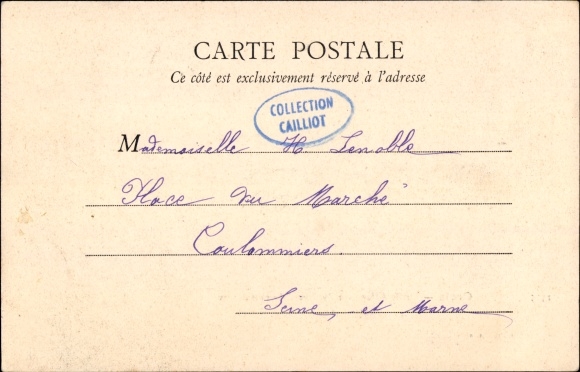 CARTE POSTALE
Ce côté est exclusivement réservé à l'adresse
COLLECTION
CAILLIOT
Mademoiselle H. Lenoble
Place du Marché
Coulommiers.
Seine, et Marne